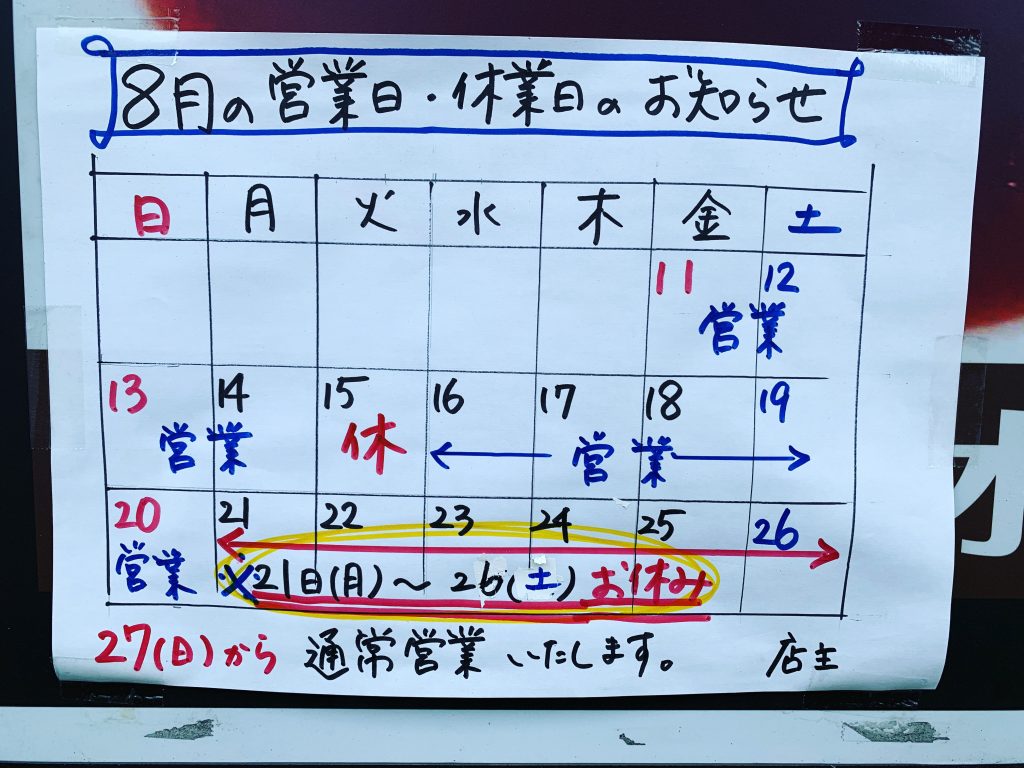 8月の営業日・休業日のお知らせ
日 月 火 水 木 金 土
11 12
営業
13 14 15 16 17 18 19
営業 休 営業
20 21 22 23 24 25 26
営業 ※21日(月)～26(土)お休み
27(日)から 通常営業いたします。 店主